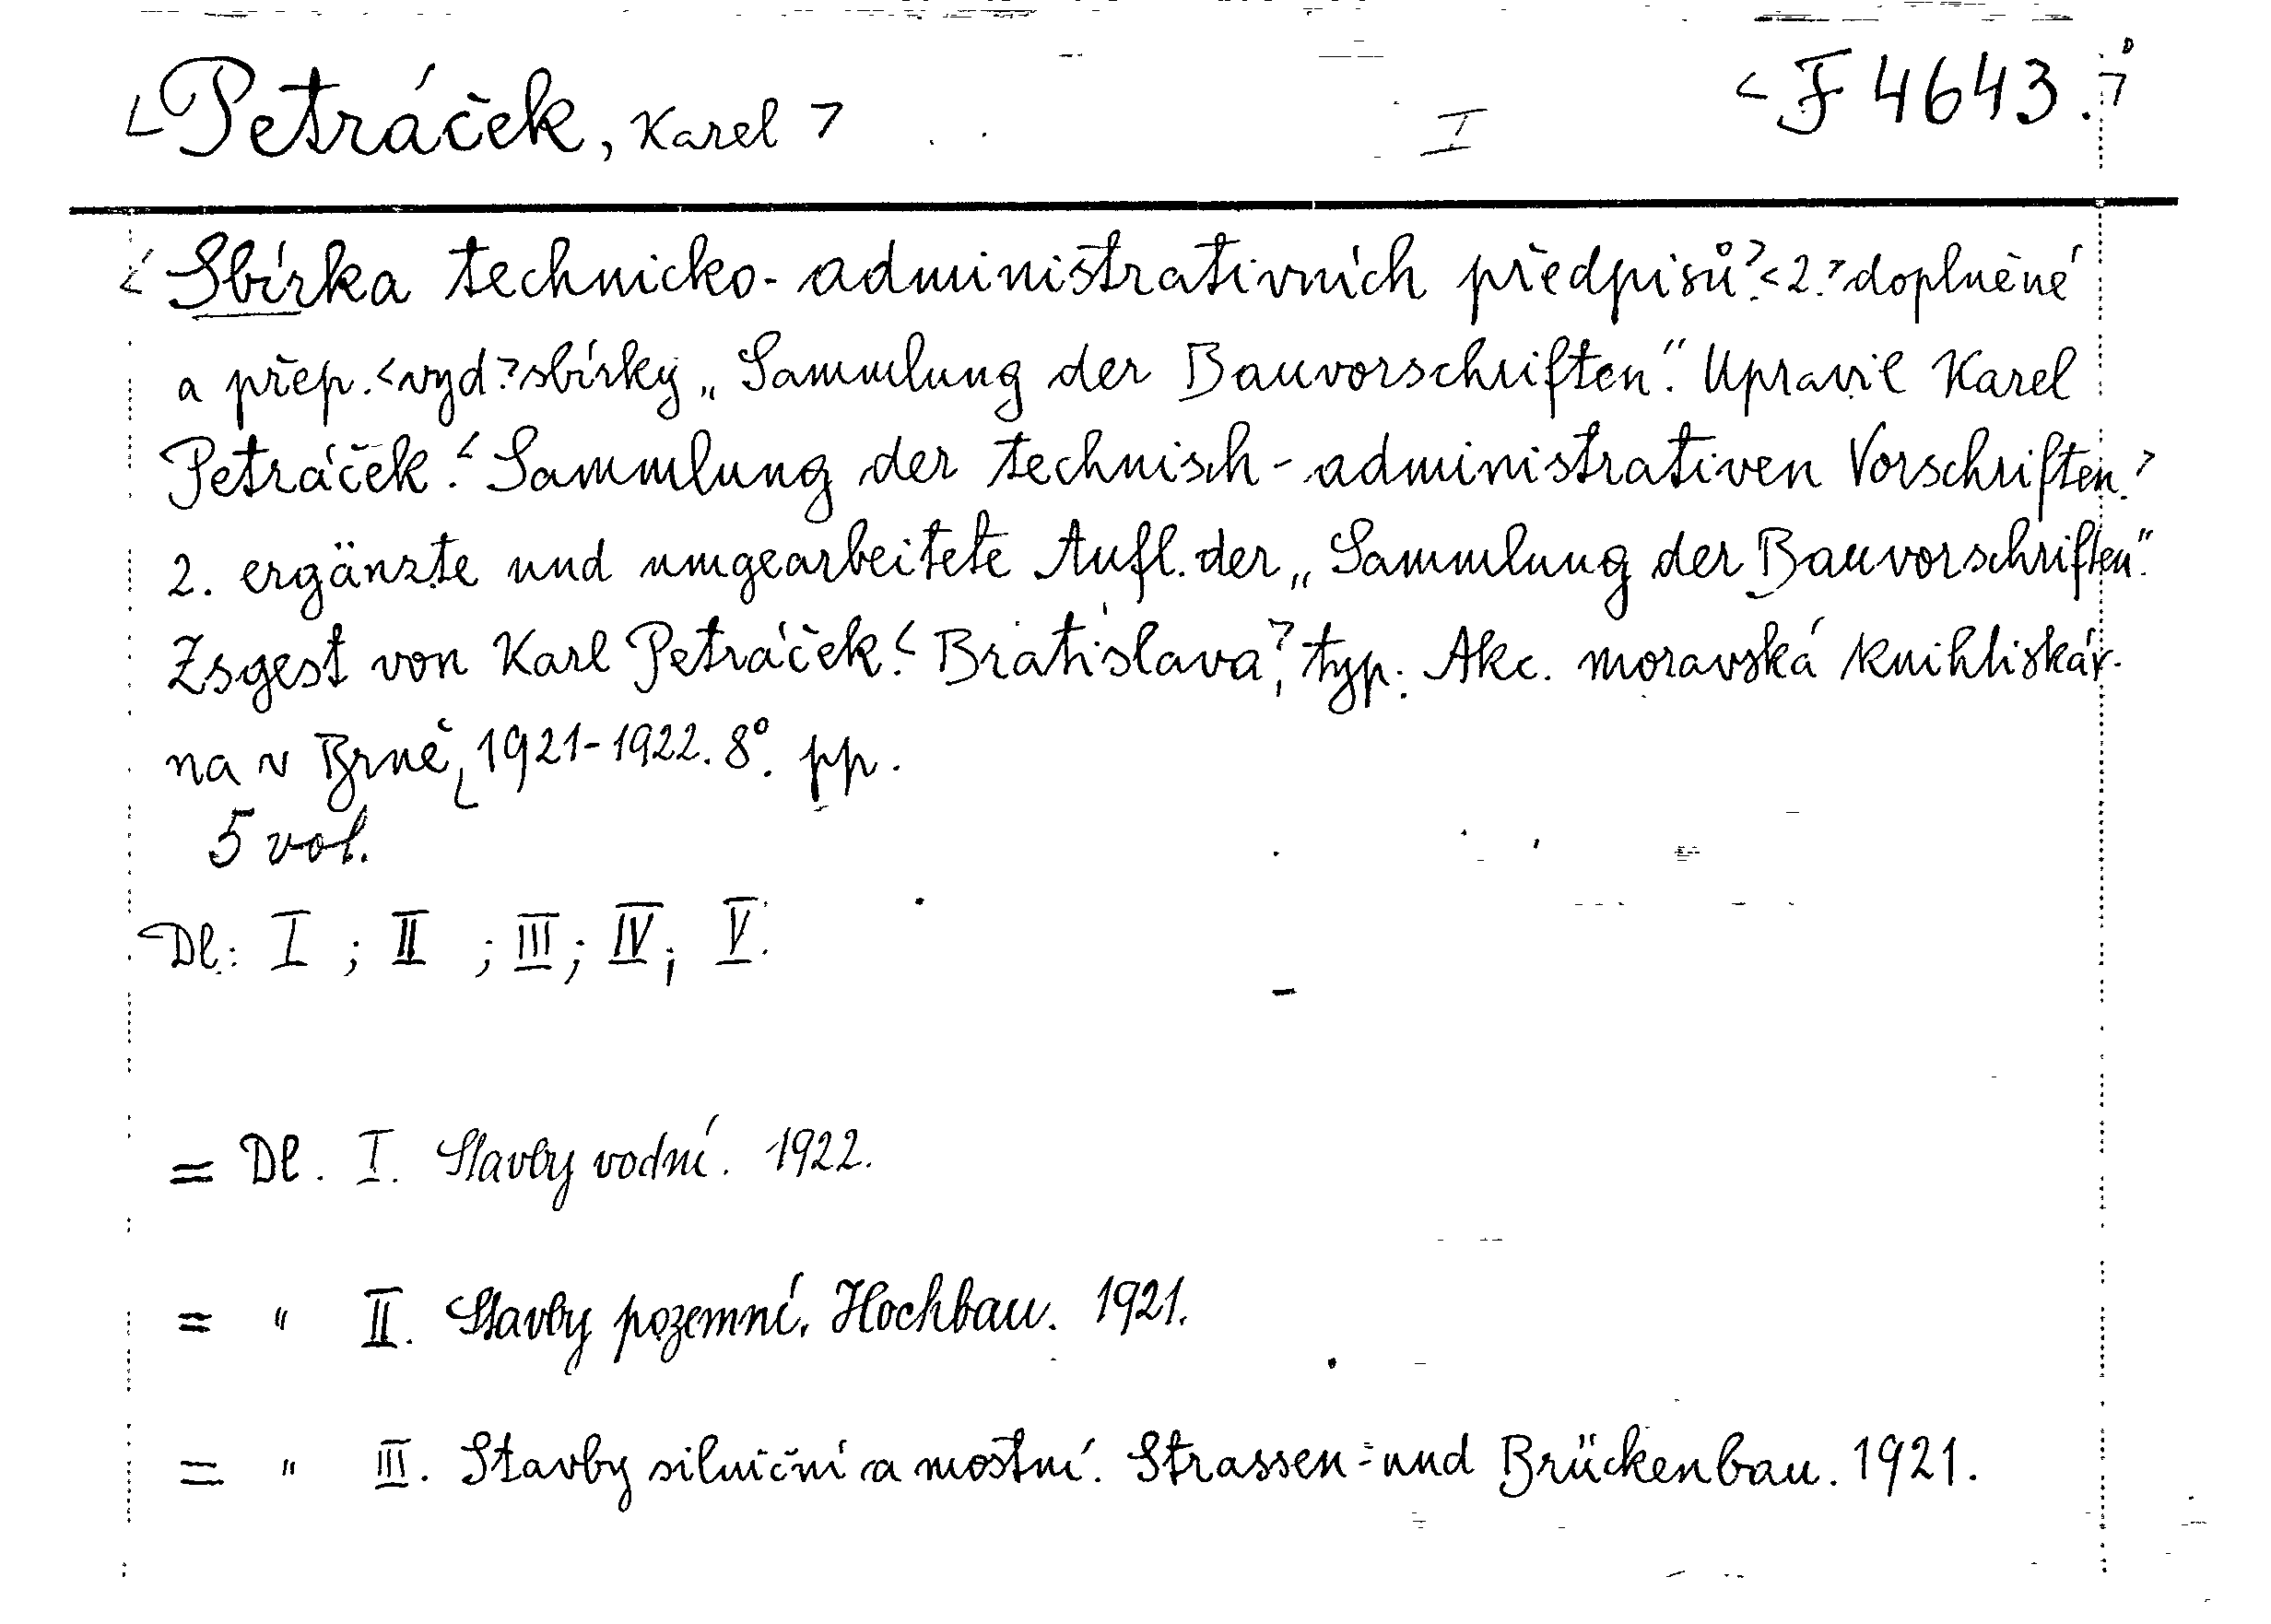 <Petráček, Karel> I <F 4643.>
<Sbírka technicko-administrativních předpisů.> <2.> doplněné
a přep. <vyd.> sbírky „Sammlung der Bauvorschriften." Upravil Karel
Petráček. <Sammlung der technisch-administrativen Vorschriften.>
2. ergänzte und umgearbeitete Aufl. der „Sammlung der Bauvorschriften".
Zsgest von Karl Petráček. <Bratislava>, typ. Akc. moravská knihtiskár-
na v Brně, 1921-1922. 8°. pp.
5 vol.
Dl: I ; II ; III ; IV ; V.
= Dl. I. Stavby vodní. 1922.
= " II. Stavby pozemní. Hochbau. 1921.
= " III. Stavby silniční a mostní. Strassen- und Brückenbau. 1921.